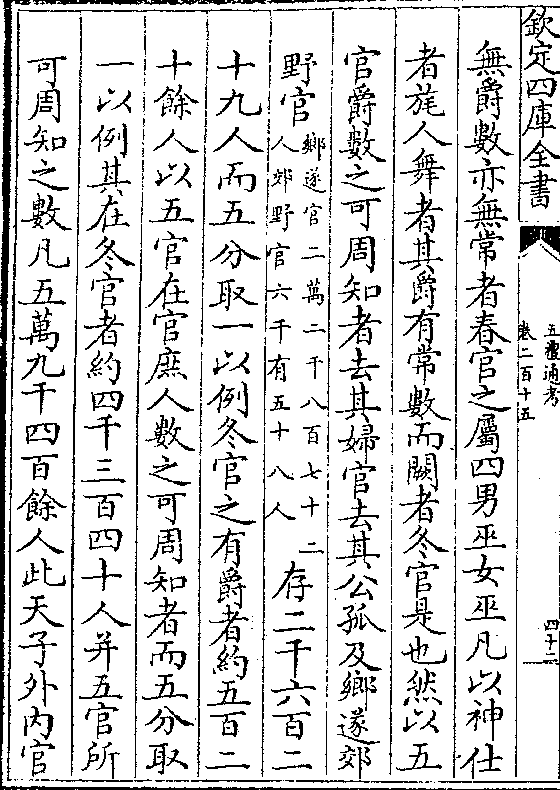 欽定四庫全書
五禮通考
卷二百十五
四十二
無爵數亦無常者春官之屬四男巫女巫凡以神仕
者旄人舞者其爵有常數而闕者冬官是也然以五
官爵數之可周知者去其婦官去其公孤及鄉遂郊
野官鄉遂官二萬二千八百七十二人郊野官六千有五十八人存二千六百二
十九人而五分取一以例冬官之有爵者約五百二
十餘人以五官在官庶人數之可周知者而五分取
一以例其在冬官者約四千三百四十人并五官所
可周知之數凡五萬九千四百餘人此天子外内官